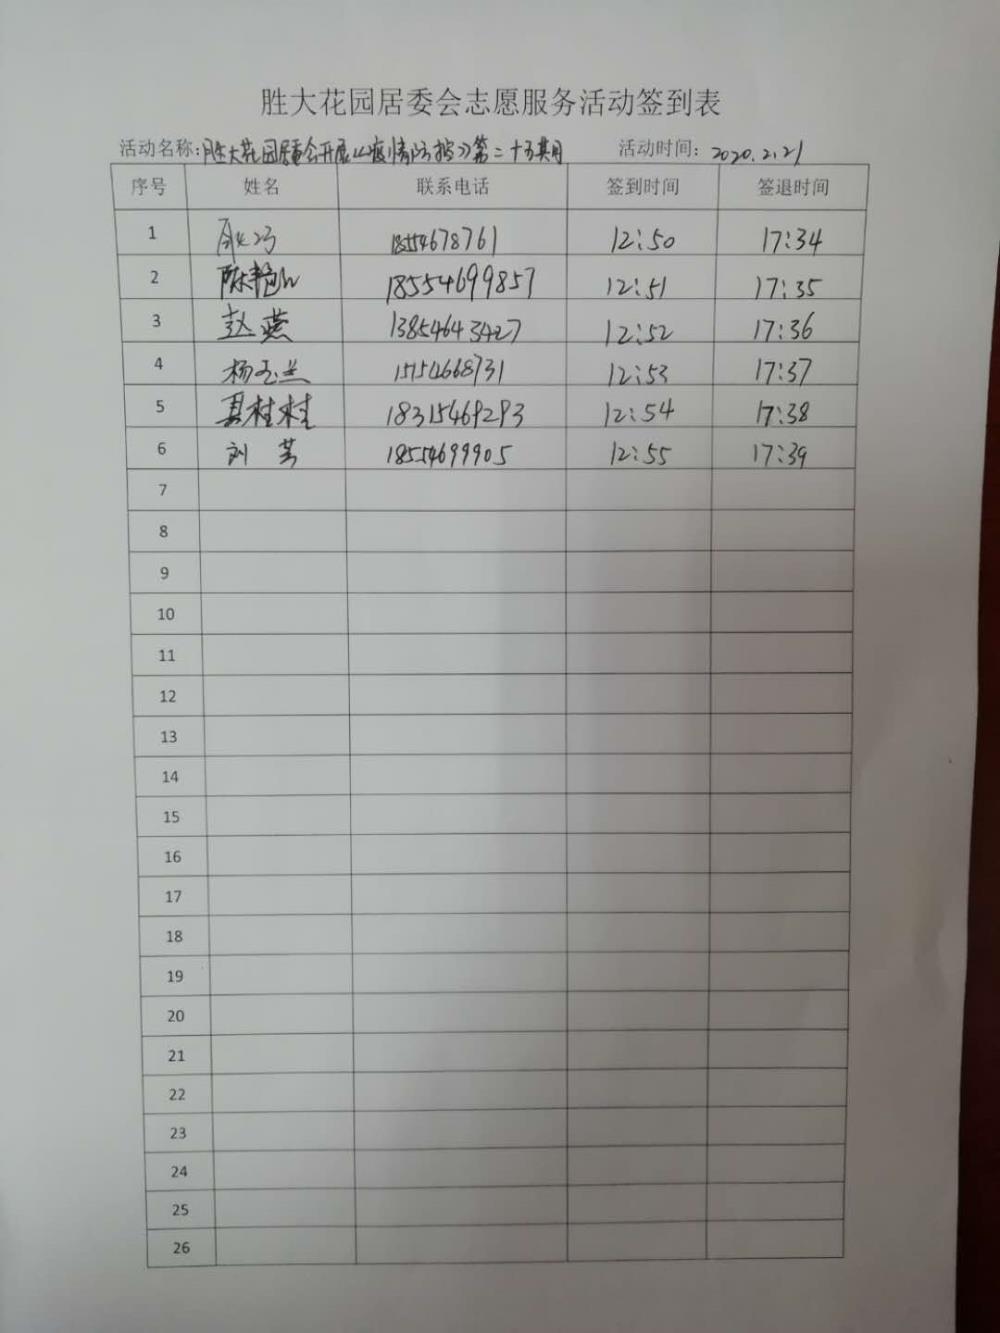 胜大花园居委会志愿服务活动签到表
活动名称:胜大花园居委会开展《疫情防控》第二十五期 活动时间: 2020.2.21
序号 姓名 联系电话 签到时间 签退时间
1 18554678761 12:50 17:34
2 陈艳 18554699857 12:51 17:35
3 赵燕 13854643427 12:52 17:36
4 杨玉兰 15154668731 12:53 17:37
5 桂桂 18315469293 12:54 17:38
6 刘芳 18554699905 12:55 17:39
7
8
9
10
11
12
13
14
15
16
17
18
19
20
21
22
23
24
25
26